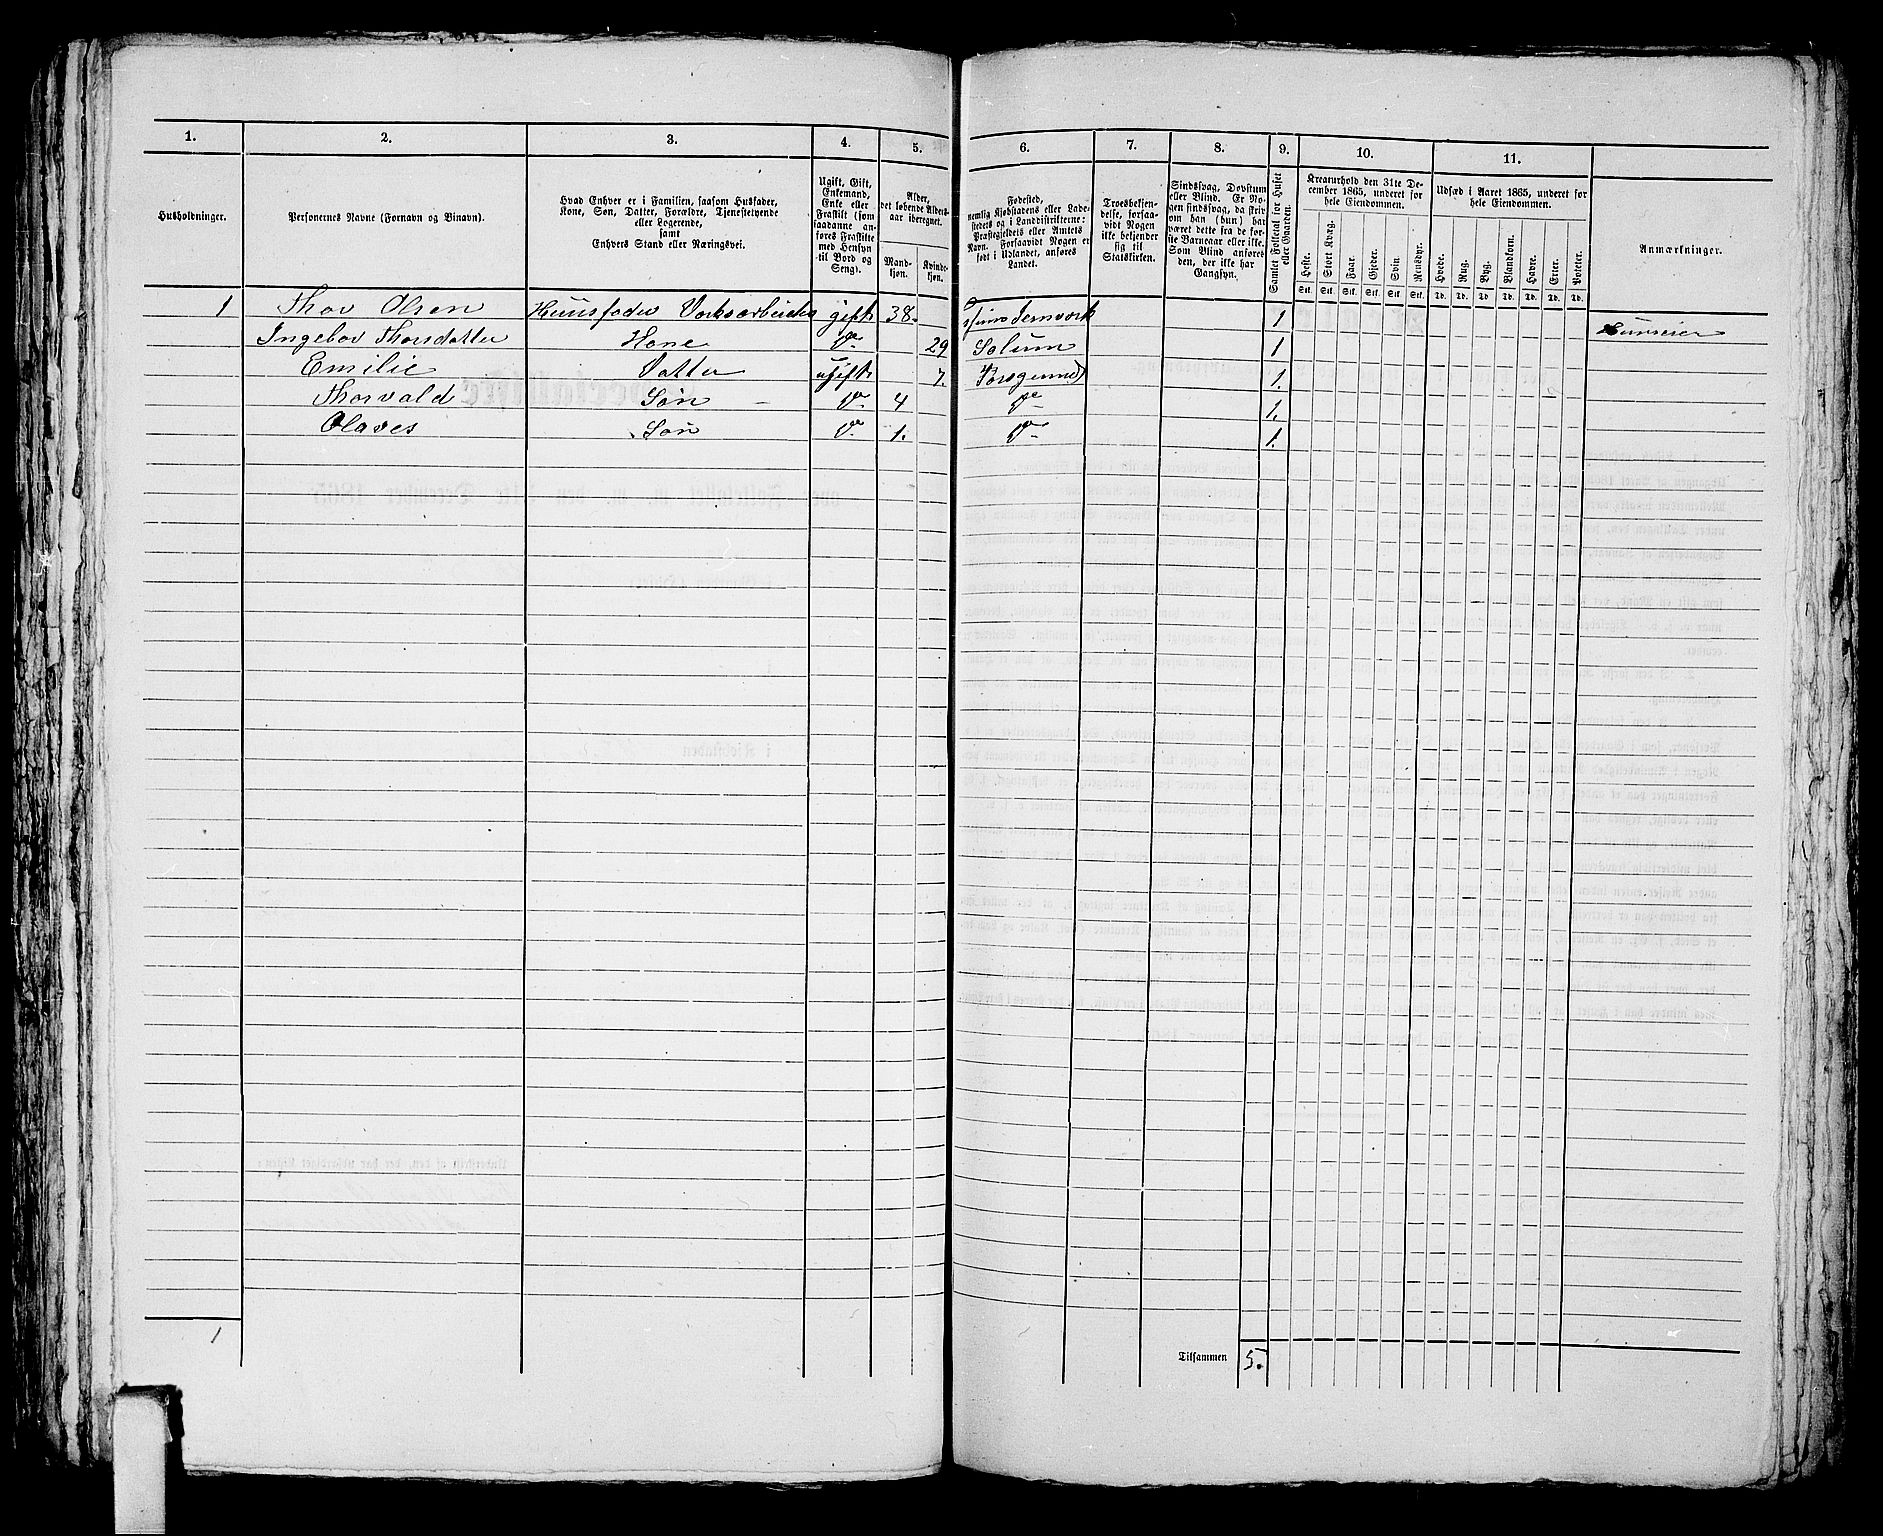 1. 2. 3. 4. 5. 6. 7. 8. 9. 10. 11.
Husholdninger.
Personernes Navne (Fornavn og Binavn).
Hvad Enhver er i Familien, saasom Husfader,
Kone, Søn, Datter, Forældre, Tjenestetyende
eller Logerende,
samt
Enhvers Stand eller Næringsvei.
Ugift, Gift,
Enkemand,
Enke eller
Fraskilt (som
saadanne an-
føres Fraskilte
med Hensyn
til Bord og
Seng).
Alder,
det løbende Alders-
aar iberegnet.
Mand-
kjøn.
Kvinde-
kjøn.
Fødested,
nemlig Kjøbstadens eller Lade-
stedets og i Landdistrikterne:
Præstegjeldets eller Amtets
Navn. Forsaavidt Nogen er
født i Udlandet, anføres
Landet.
Troesbekjen-
delse, forsaa-
vidt Nogen
ikke bekjender
sig til
Statskirken.
Sindssvag, Døvstum
eller Blind. Er No-
gen sindssvag, da skriv
om han (hun) har
været dette fra de før-
ste Barneaar eller ikke.
Som Blind anføres
den, der ikke har
Gangsyn.
Samlet Folketal for Huset
eller Gaarden.
Kreaturhold den 31te De-
cember 1865, underet for
hele Eiendommen.
Heste. Stort Kvæg. Faar. Gjeder. Svin. Rensdyr.
Stk. Stk. Stk. Stk. Stk. Stk.
Udsæd i Aaret 1865, underet for
hele Eiendommen.
Hvede. Rug. Byg. Blandkorn. Havre. Erter. Poteter.
Td. Td. Td. Td. Td. Td. Td.
Anmærkninger.
1 Thor Olsen Huusfader Værksarbeider gift 38. 1
Ingebor Thorsdatter Kone Do 29 Solum 1
Emilie Datter ugift 7. Porsgrund 1.
Thorvald Søn Do 4 Do 1.
Olaves Søn Do 1. Do 1.
1
Tilsammen 5.